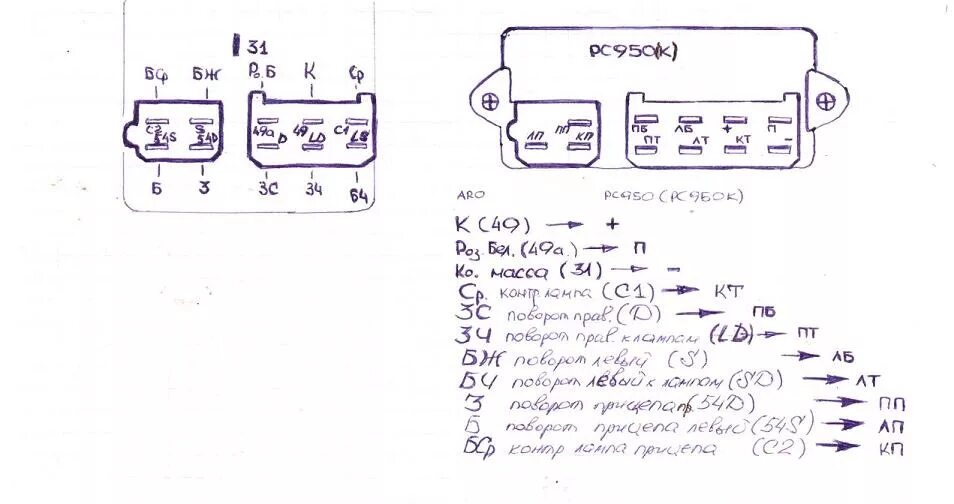 31
БФ БЖ Ро.Б К Ср
С2 S 49а 49 С1
54S 54D D LD LS
Б З ЗС ЗЧ БЧ
РС950(К)
ПП ПБ ЛБ + П
ЛП КП ПТ ЛТ КТ -
ARO РС950 (РС950К)
К (49) → +
Роз.Бел. (49а.) → П
Ко. масса (31) → −
Ср. контр лампа (С1) → КТ
ЗС поворот прав. (D) → ПБ
ЗЧ поворот прав. к лампам (LD) → ПТ
БЖ поворот левый (S) → ЛБ
БЧ поворот левый к лампам (SD) → ЛТ
З поворот прицепа пр. (54D) → ПП
Б поворот прицепа левый (54S) → ЛП
БФ контр лампа прицепа (С2) → КП